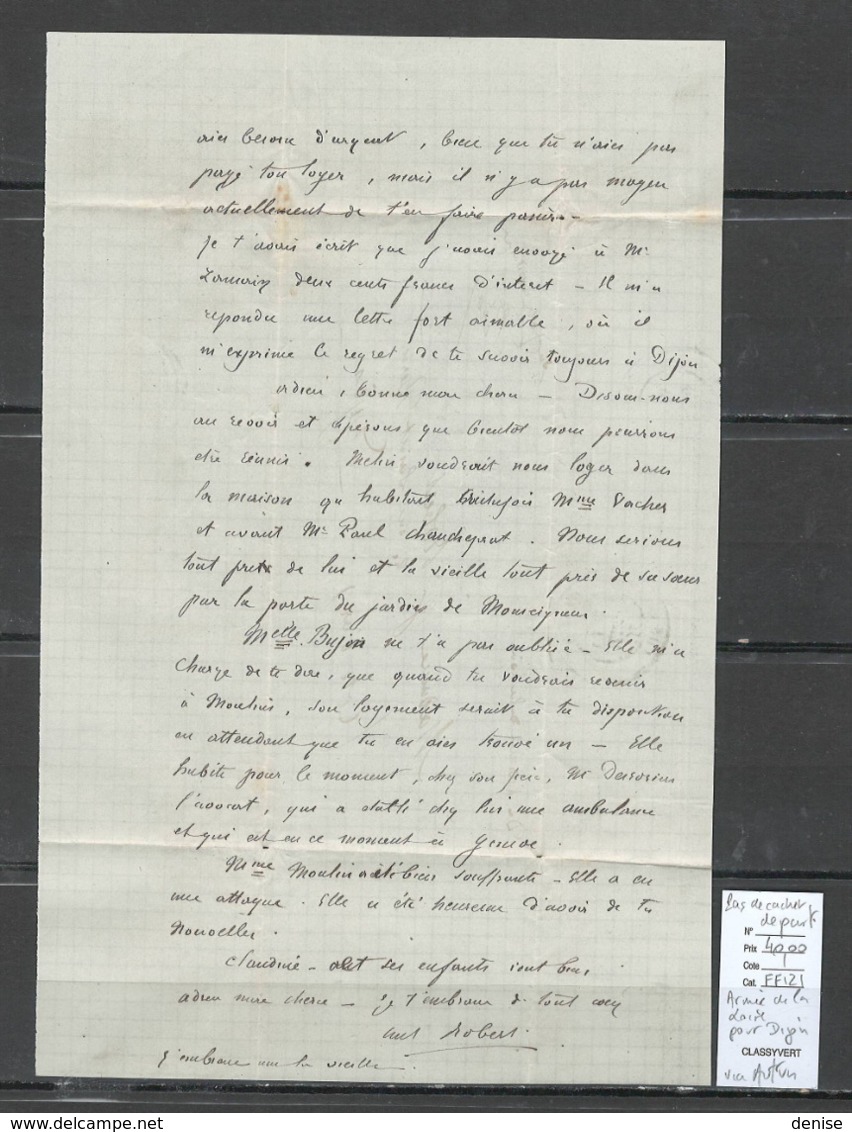 aies besoin d'argent, bien que tu n'aies pas
payé ton loyer, mais il n'y a pas moyen
actuellement de t'en faire passer.-
Je t'avais écrit que j'avais envoyé à Mr
deux cents francs d'interet - Il m'a
repondu une lettre fort aimable, où il
m'exprime le regret de te savoir toujours à Dijon
adieu, bonne mere cherie - Disons-nous
au revoir et espérons que bientot nous pourrons
etre réunis. voudrait nous loger dans
la maison qu'habitait autrefois Mme Vacher
et avant Mr Paul Chaucheprat. Nous serions
tout près de lui et la vieille tout près de sa sœur
par la porte du jardin de Monseigneur.
Melle Bujon ne t'a pas oubliée - Elle m'a
chargé de te dire, que quand tu voudrais revenir
à Moulins, son logement serait à ta disposition
en attendant que tu en aies trouvé un - Elle
habite pour le moment, chez son frère, Mr
l'avocat, qui a établi chez lui une ambulance
et qui est en ce moment à Genève.
Mme Moulin a été bien souffrante - Elle a eu
une attaque. Elle a été heureuse d'avoir de tes
nouvelles.
Claudine - et ses enfants vont bien
adieu mere cherie - je t'embrasse de tout cœur
Robert
j'embrasse la vieille.
Pas de cachet
depart
N°
Prix 40,00
Cote
Cat. FF121
Armée de la
Loire
pour Dijon
CLASSYVERT
via Autun
- denise -